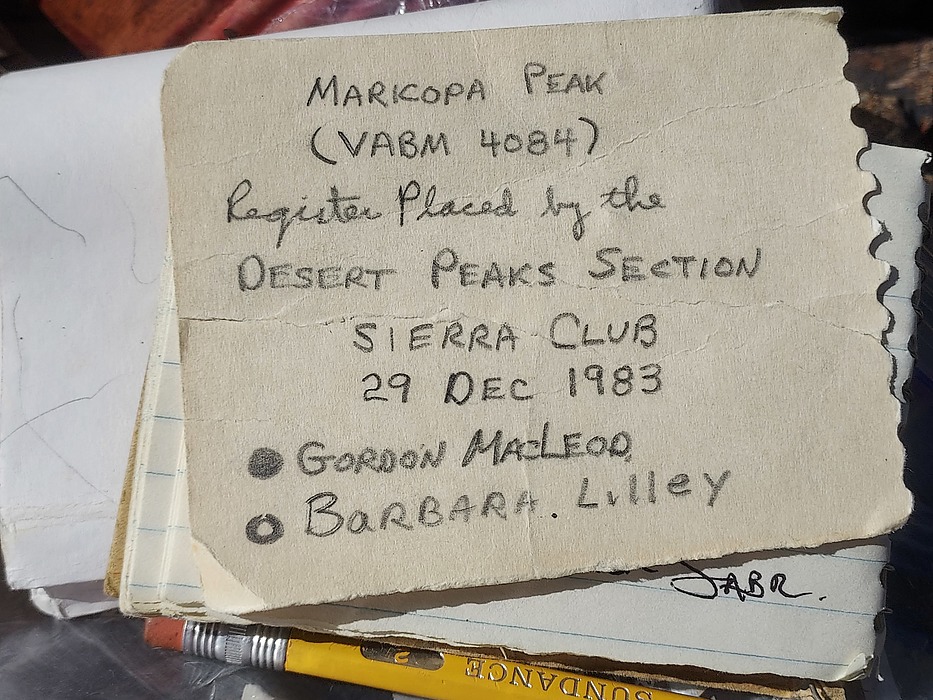 MARICOPA PEAK
(VABM 4084)
Register Placed by the
DESERT PEAKS SECTION
SIERRA CLUB
29 DEC 1983
GORDON MACLEOD
BARBARA. Lilley
JABR.
2
SUNDANCE